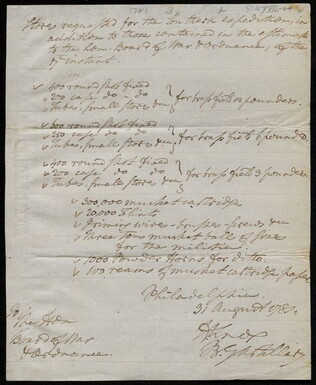 1781
Stores requested for the southern expedition, in
addition to those contained in the estimate
to the hon. Board of War & Ordnance, of the
17 instant.
400 round shot fixed
200 case do do
Tubes, small stores &c
for brass field 12 pounders.
500 round shot fixed
250 case do do
Tubes, small stores &c
for brass field 6 pounders
400 round shot fixed
200 case do do
Tubes, small stores &c
for brass field 3 pounders
300,000 musket cartridges
20,000 Flints
Priming wires & brushes screws &c
three tons musket balls of size
for the militia
1000 Powder horns for do to.
100 reams of musket cartridge paper
Philadelphia
31 August 1781.
HKnox
B. G. Artillery
The Hon
Board of War
& Ordnance.